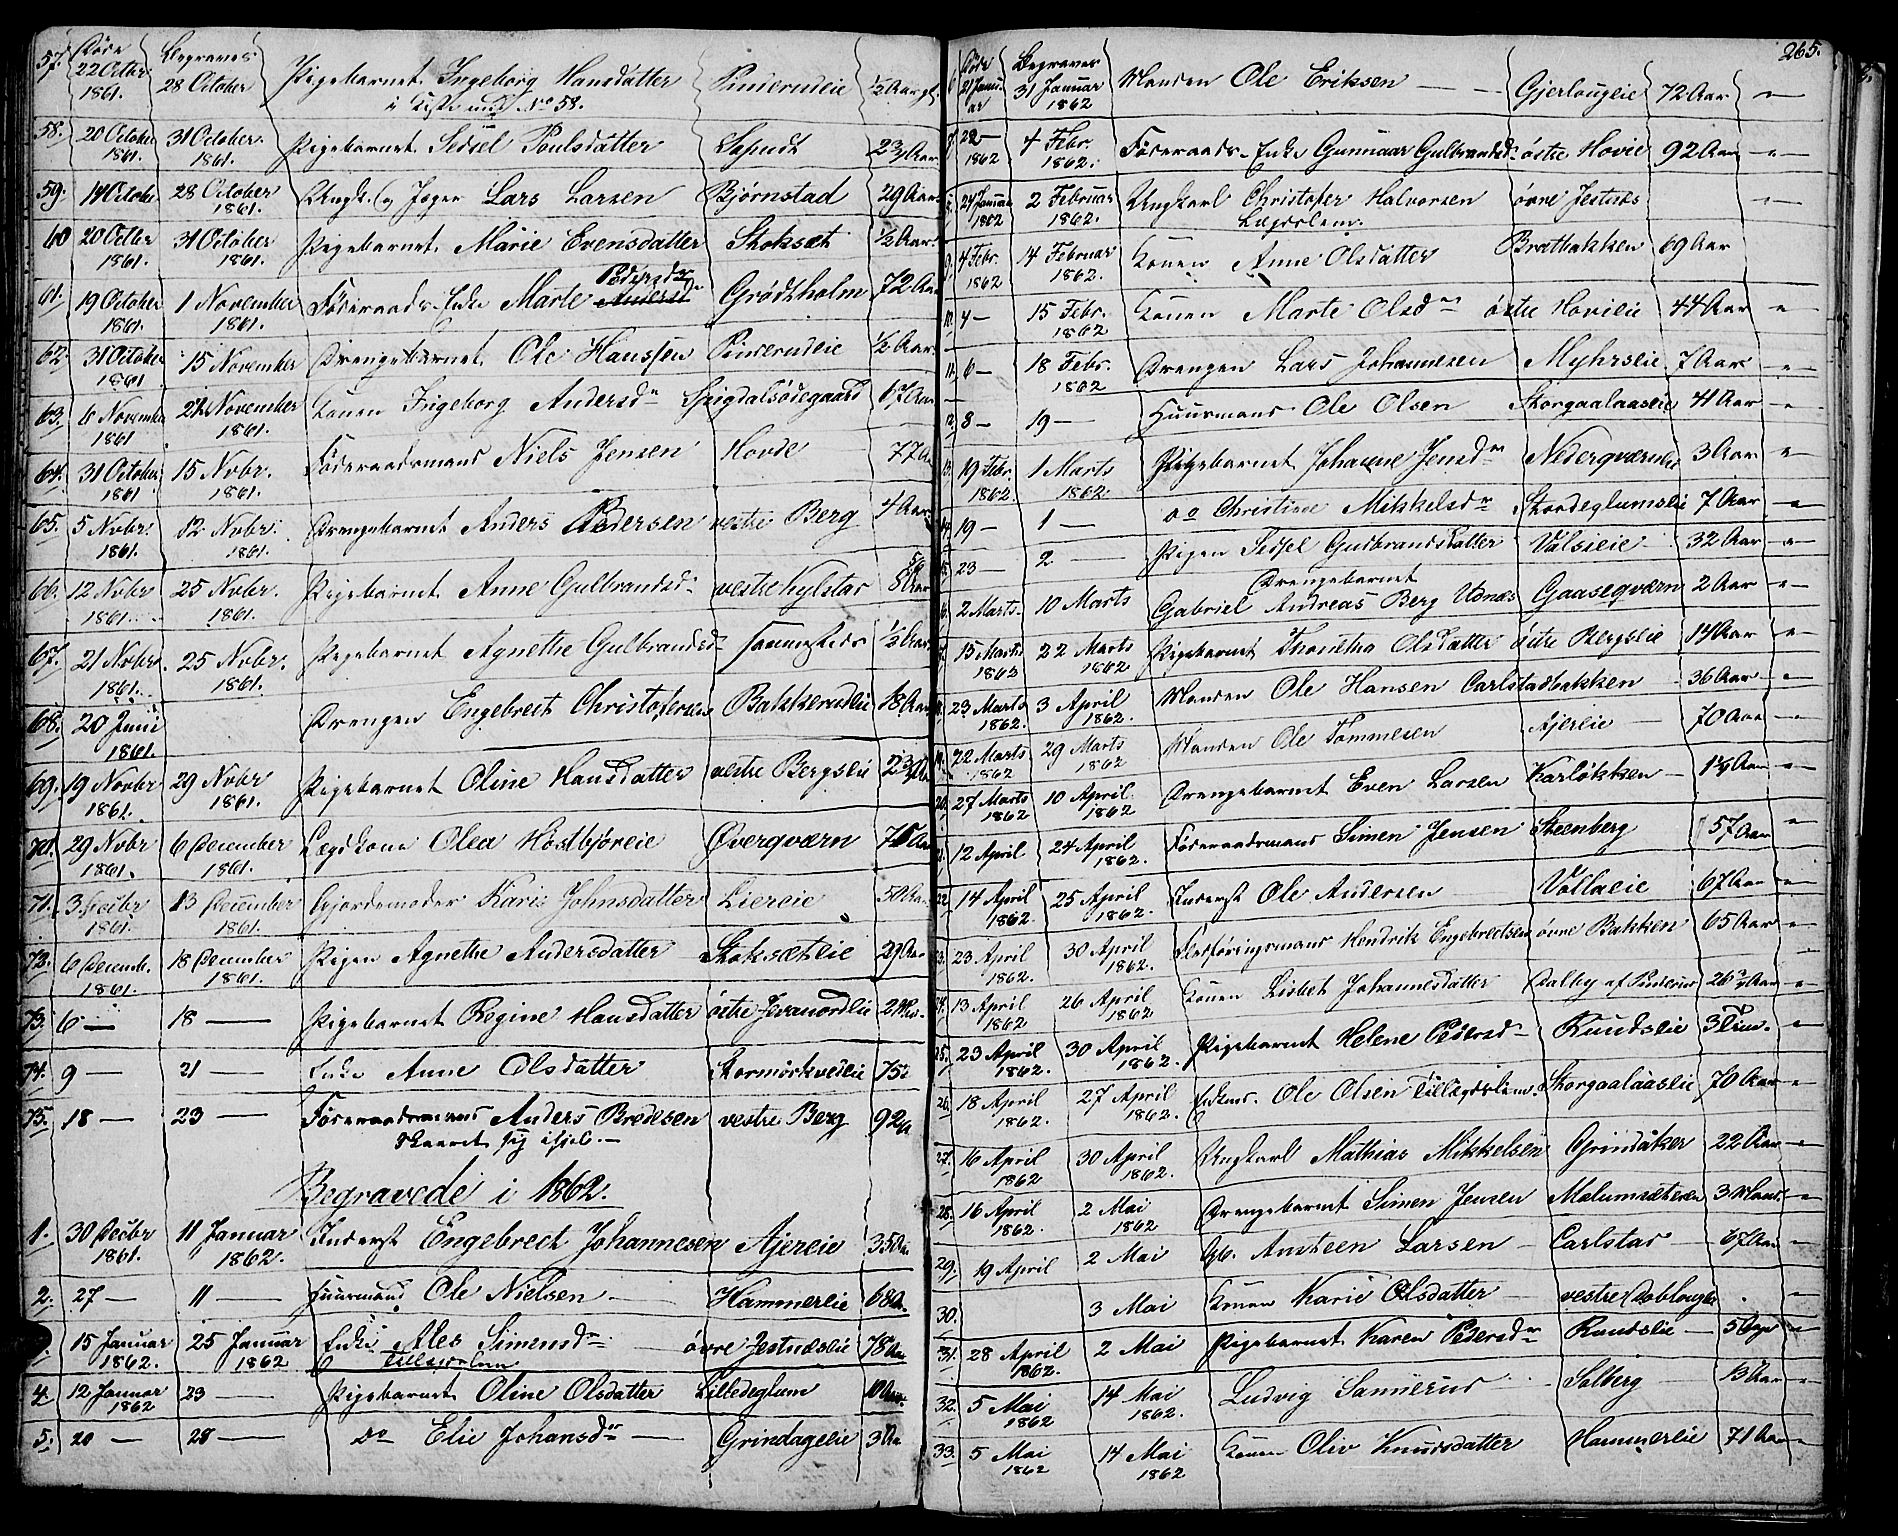 57. Døde 22 Octbr 1861. Begraves 28 October Pigebarnet Ingeborg Hansdatter Pinderudeie ½ Aar gl
i Kiste med No 58.
58. 20 October 1861. 31 October 1861. Pigebarnet Sedsel Poulsdatter 2 Aar
59. 14 October 28 October 1861. Ungk. og Jæger Lars Larsen Bjørnstad 29 Aar
60 20 Octbr 1861. 31 October 1861. Pigebarnet Marie Evensdatter Stoksæt ½ Aar
61. 19 October 1861. 1 November 1861. Føderaads Enke Marte Pedersdr Grødtholm 72 Aar
62. 31 October 1861 15 November Drengebarnet Ole Hanssen Pinderudeie ½ Aar
63. 6 November 1861 21 November 1861. Konen Ingeborg Andersdr Spigdalsødegaard 67 Aar
64. 31 October 1861 15 Novbr. 1861. Føderaadsmand Niels Jensen Hovde 77 A
65. 5 Novbr. 1861. 12 Novbr. 1861. Drengebarnet Anders Pedersen vestre Berg 4 Aar
66. 12 Novbr 1861. 25 Novbr. 1861. Pigebarnet Anne Gulbrandsd vestre Kylstad 8 Aar
67. 21 Novbr. 1861. 25 Novbr. 1861. Pigebarnet Agnethe Gulbrandsd sammesteds ½ Aar
68. 20 Juni 1861. Drengen Engebret Christofersen Bakkerudeie 18 Aar
69. 19 Novbr 1861. 29 Novbr 1861. Pigebarnet Oline Hansdatter vestre Bergseie
70. 29 Novbr 1861. 6 December 1861. Lægdkone Olea Høstbjøreie Øverqværn
71. 3 Decbr 1861. 13 December 1861. Gjordemoder Kari Johnsdatter Liereie 50 Aar
72. 6 Decemb. 1861. 18 December 1861. Pigen Agnethe Andersdatter Stoksæteie 29 Aar
73. 6 — 18 — Pigebarnet Regine Hansdatter østre Jevanordeie
74. 9 — 21 — Enke Anne Olsdatter Stormørkvedeie 75
75. 18 — 23 — Føderaadsmand Anders Bredesen vestre Berg 92 A
Skaaret sig ihjel. —
Begravede i 1862.
1. 30 Decbr 1861. 11 Januar 1862. Inderst Engebrect Johannesen Ajereie 35 Aar
2. 27 — 11 — Huusmand Ole Nielsen Hammereie 68 A.
15 Januar 1862. 25 Januar 1862 Enke Ales Simensdr øvre Jestnæseie 78 Aar
4. 12 Januar 1862 23 — Pigebarnet Oline Olsdatter Lilledeglum
5. 20 — 28 — Do Elie Johansdr Grindageeie 3 Aar
265.
6 Døde 21 Januar Begraves 31 Januar 1862 Manden Ole Eriksen — Gjerlaugeie 72 Aar —"—
7. 22 — 1862 4 Febr. 1862. Føderaads-Enke Gunnaar Gulbrandsd. østre Hovie 92 Aar —"—
8. 24 Januar 1862 2 Februar 1862. Ungkarl Christofer Halvorsen øvre Jestnæs —"—
Lægdslem.
9. 4 Febr. 1862 14 Februar 1862. Konen Anne Olsdatter Bratbakken 69 Aar
10. 4 — 15 Febr. 1862 Konen Marte Olsdr østre Hovieie 44 Aar —"—
11. 6 — 18 Febr. 1862 Drengen Lars Johannesen Myhrseie 7 Aar —"—
12. 8 — 19 — Huusmand Ole Olsen Skorgaalaaseie 41 Aar —"—
13. 19 Febr. 1862. 1 Marts 1862. Pigebarnet Johanne Jensdr Nederqværneie 3 Aar —"—
14. 19 — 1 — do Christine Mikkelsdr Skordeglumseie 7 Aar —"—
15. 23 — 2 — Pigen Sedsel Gudbrandsdatter Valseie 32 Aar —"—
Drengebarnet
16. 2 Marts. 10 Marts Gabriel Andreas Berg Usnæs Gaaseqværn 2 Aar —"—
17. 15 Marts 1862 22 Marts 1862 Pigebarnet Thonetha Olsdatter østre Bergseie 14 Aar —"—
18. 23 Marts 1862. 3 April 1862. Manden Ole Hansen Carlstadbakken 36 Aar —"—
19. 22 Marts 1862 29 Marts 1862 Manden Ole Tommesen Ajereie — 70 Aar —"—
20. 27 Marts 1862 10 April 1862 Drengebarnet Even Larsen Karløkken — —"—
21. 12 April 24 April 1862. Føderaadsmand Simen Jensen Steenberg 57 Aar —"—
22. 14 April 1862 25 April 1862. Inderst Ole Andersen Vollaeie 67 Aar —"—
23. 23 April 1862. 30 April 1862. Flatføringsmand Hendrik Engebretsen øvre Bakken 65 Aar —"—
24. 13 April 1862 26 April 1862 Konen Lisbet Johannesdatter Dalby af 26 Aar —"—
25. 23 April 1862. 30 April 1862. Pigebarnet Helene Pedersd Rundseie —"—
26. 18 April 1862. 27 April 1862. Enkem. Ole Olsen Tillægdslem. Skorgaalaaseie 70 Aar —"—
27. 16 April 1862 30 April 1862. Ungkarl Mathias Mikkelsen Grindaker 22 Aar —"—
28. 16 April 1862. 2 Mai 1862 Drengebarnet Simen Jensen Malumsæteren 3 Maan. —"—
29. 19 April 2 Mai Gb. Ansteen Larsen — Carlstad 67 Aar —"—
30. 3 Mai Konen Karie Olsdatter — vestre Dobloug —"—
31. 28 April 1862. 2 Mai Pigebarnet Karen Pedersdr Rundseie — 5 Dage —"—
32. 5 Mai 1862 14 Mai 1862. Ludvig Solberg 13 Aar —"—
33. 5 Mai 1862 14 Mai 1862 Konen Oliv Knudsdatter Hammereie 71 Aar —"—